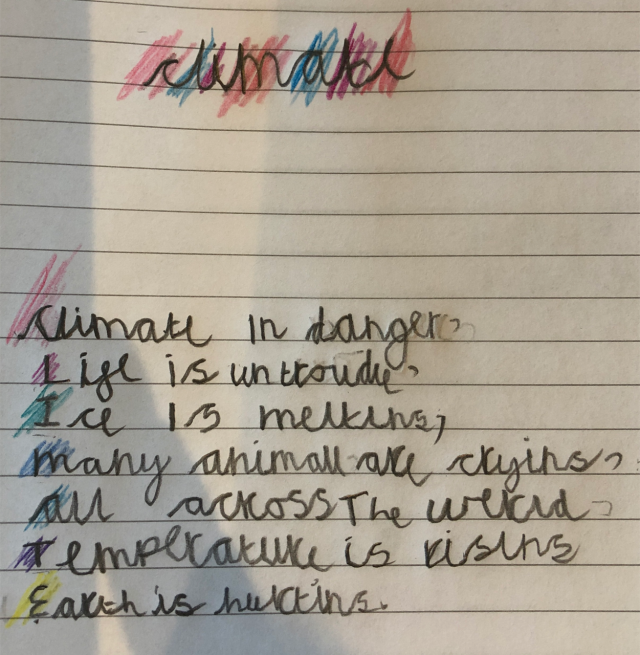 climate
Climate in danger,
Life is untroudle,
Ice is melting,
many animall are crying,
all across The world,
Temperature is rising
Earth is hurting.